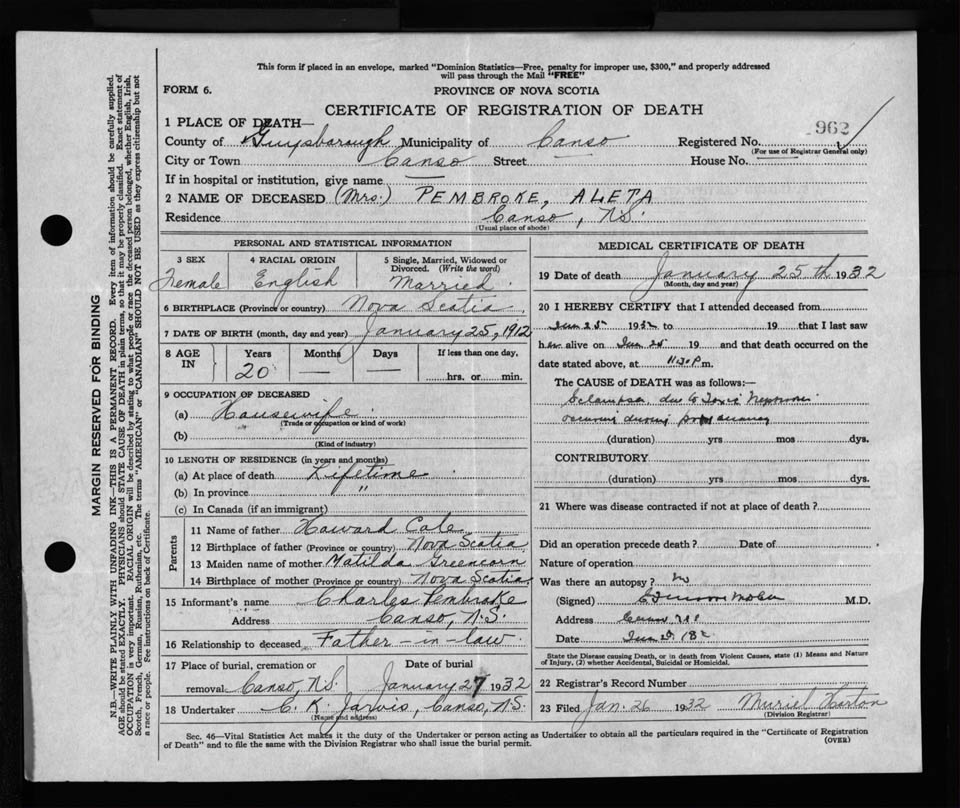 This form if placed in an envelope, marked "Dominion Statistics—Free, penalty for improper use, $300," and properly addressed
will pass through the Mail "FREE"
FORM 6.
PROVINCE OF NOVA SCOTIA
CERTIFICATE OF REGISTRATION OF DEATH
1 PLACE OF DEATH—
962
County of Guysborough Municipality of Canso Registered No.
(For use of Registrar General only)
City or Town Canso Street — House No. —
If in hospital or institution, give name —
2 NAME OF DECEASED (Mrs.) PEMBROKE, ALETA
Residence Canso, N.S.
(Usual place of abode)
PERSONAL AND STATISTICAL INFORMATION
3 SEX 4 RACIAL ORIGIN 5 Single, Married, Widowed or
Divorced. (Write the word)
Female English Married
6 BIRTHPLACE (Province or country) Nova Scotia
7 DATE OF BIRTH (month, day and year) January 25, 1912
8 AGE IN Years Months Days If less than one day,
20 — — hrs. or min.
9 OCCUPATION OF DECEASED
(a) Housewife
(Trade or occupation or kind of work)
(b)
(Kind of industry)
10 LENGTH OF RESIDENCE (in years and months)
(a) At place of death Lifetime
(b) In province "
(c) In Canada (if an immigrant)
Parents
11 Name of father Howard Cole
12 Birthplace of father (Province or country) Nova Scotia
13 Maiden name of mother Matilda Greencorn
14 Birthplace of mother (Province or country) Nova Scotia
15 Informant's name Charles Pembroke
Address Canso, N.S.
16 Relationship to deceased Father-in-law
17 Place of burial, cremation or Date of burial
removal Canso, N.S. January 27 1932
18 Undertaker C. K. Jarvis, Canso, N.S.
(Name and address)
MEDICAL CERTIFICATE OF DEATH
19 Date of death January 25th 1932
(Month, day and year)
20 I HEREBY CERTIFY that I attended deceased from
Jan 25 1932 to 19 that I last saw
her alive on Jan 25 19 and that death occurred on the
date stated above, at 11.30 P m.
The CAUSE of DEATH was as follows:—
due to
during
(duration) yrs mos dys.
CONTRIBUTORY
(duration) yrs mos dys.
21 Where was disease contracted if not at place of death?
Did an operation precede death? Date of
Nature of operation
Was there an autopsy? no
(Signed) M.D.
Address
Date Jan
State the Disease causing Death, or in death from Violent Causes, state (1) Means and Nature
of Injury, (2) whether Accidental, Suicidal or Homicidal.
22 Registrar's Record Number
23 Filed Jan. 26 1932 Muriel Horton
(Division Registrar)
Sec. 46—Vital Statistics Act makes it the duty of the Undertaker or person acting as Undertaker to obtain all the particulars required in the "Certificate of Registration
of Death" and to file the same with the Division Registrar who shall issue the burial permit.
(OVER)
MARGIN RESERVED FOR BINDING
N.B.—WRITE PLAINLY WITH UNFADING INK—THIS IS A PERMANENT RECORD. Every item of information should be carefully supplied.
AGE should be stated EXACTLY. PHYSICIANS should STATE CAUSE OF DEATH in plain terms, so that it may be properly classified. Exact statement of
OCCUPATION is very important. RACIAL ORIGIN will be described by stating to what people or race the deceased person belonged, whether English, Irish,
Scotch, French, German, Russian, Ruthenian, etc. The terms "AMERICAN" or "CANADIAN" SHOULD NOT BE USED as they express citizenship but not
a race or people. Fee instructions on back of Certificate.